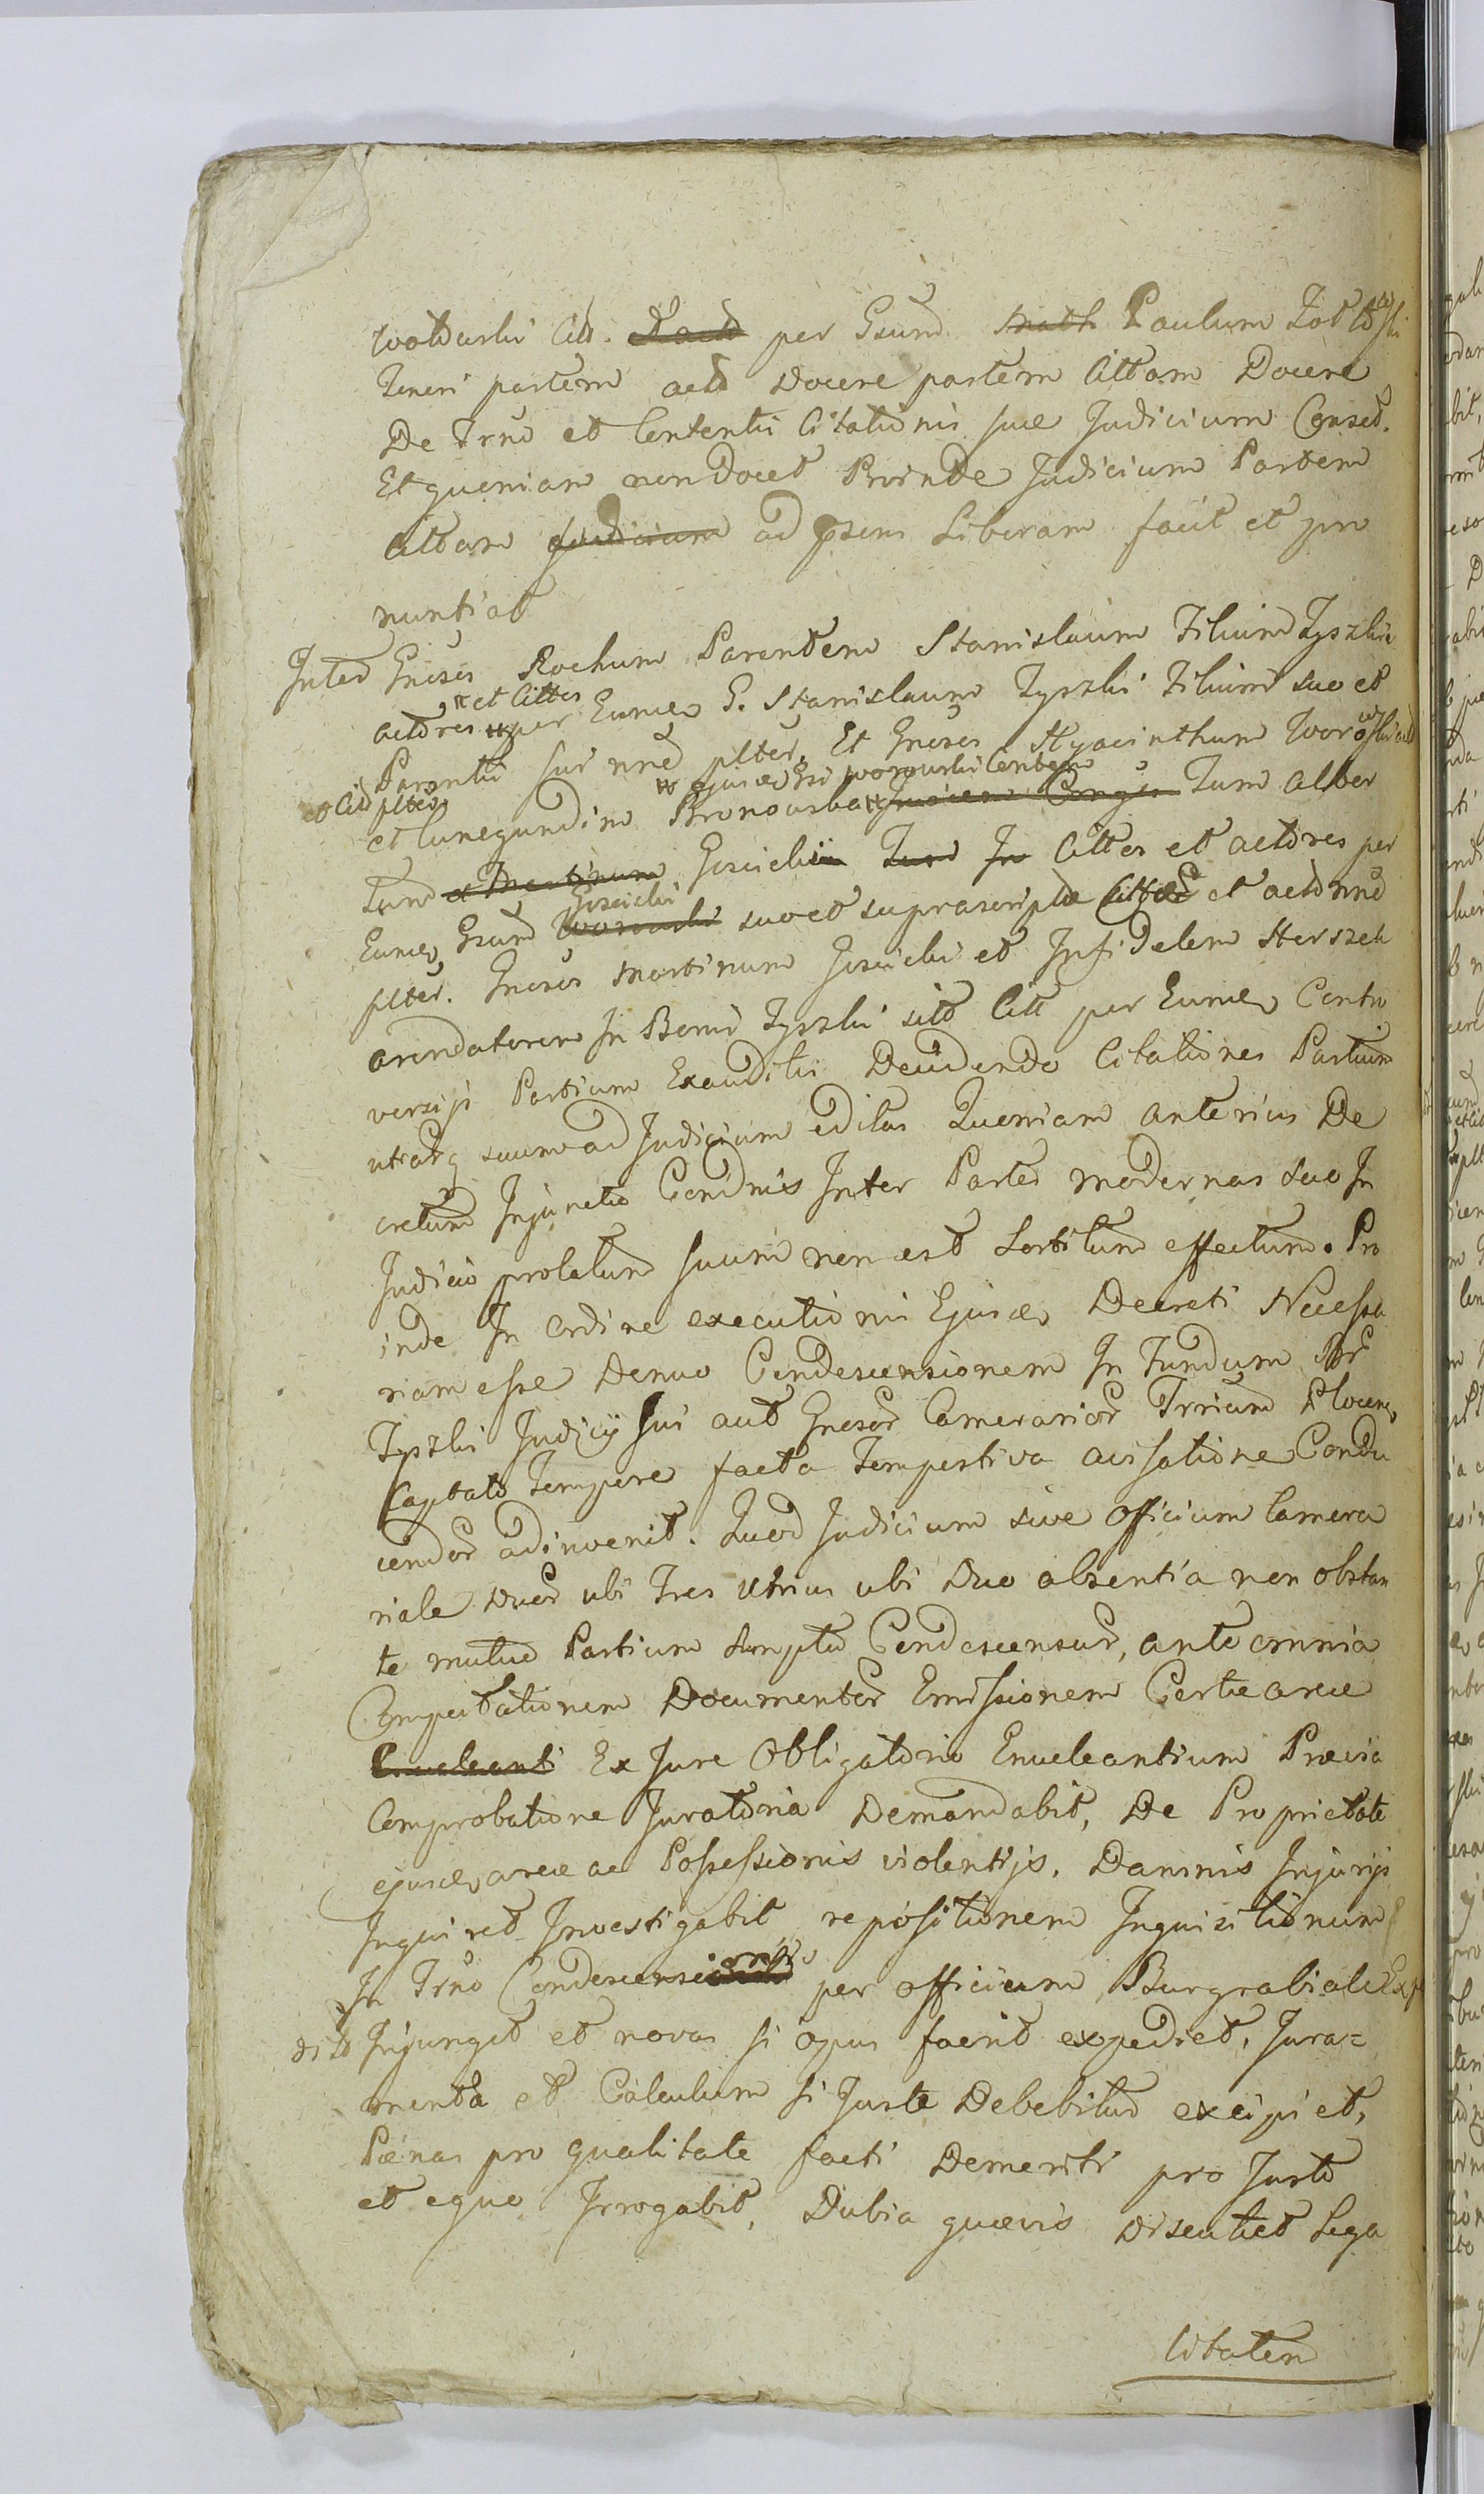 per Gsum Paulum
Teneri partem act Docere partem Cittam Docere
De Trno et Contentis Citationis sue Judicium Conset.
Et quoniam non Docet Proinde Judicium Partem
Cittam Judicium ad psens Liberam facit et pro
nuntiat
Inter Gnosos Rochum Parentem Stanislaum Filium Tyszkie
et Cittos
actores per Eunde G. Stanislaum Tyszki Filium suo et
Parentis sui nne plter. Et Gnosos Hyacinthum
et Cunegundim Bronowska Tum Alber
Tum et Martinum Gosicki Tum In Cittos et actores per
Gosicki
Eunde Gsum suo et suprascriptae et act nne
plter. Gnosos Martinum Gosicki et Infidelem Herszek
arendatorem In Bonis Tyszki sito Citt per Eunde Contro
versijs Partium Exauditis Decidendo Citationes Partium
utrarq suum ad Judicium editas Quoniam anterius De
cretum Injuncto Condnis Inter Partes modernas suo In
Judicio prolatum suum non est Sortitum effectum. Pro
inde In ordine executionis Ejusde Decreti Necessa
riam esse Denuo Condescensionem In Fundum Bor
Tyszki Judicij sui aut Gnosor Camerarior Trrium Plocen
Captato Tempore facta Tempestiva avisatione Condu
cendor adinvenit. Quod Judicium sive Officium Camera
riale Duor ubi Tres Utrius ubi Duo absentia non obstan
te mutuo Partium Sumptu Condescensur, ante omnia
Comportationem Documentor Emissionem Certae areae
Enucleanti Ex Jure Obligatorio Enucleantium Praevia
Comprobatione Juratoria Demandabit, De Proprietate
ejusde areae ac Possessionis violentijs, Damnis Injurijs
Inquiret Investigabit repositionem Inquisitionum
In Trno Condescensionis per officium Burgrabiale Exp
dito Injunget et novas si opus fuerit expediet, Jura=
menta et Calculum si Juste Debebitur excipiet,
Poenas pro qualitate facti Demeriti pro Justo
et equo Irrogabit, Dubia quaevis Discutiet Lega
litatem